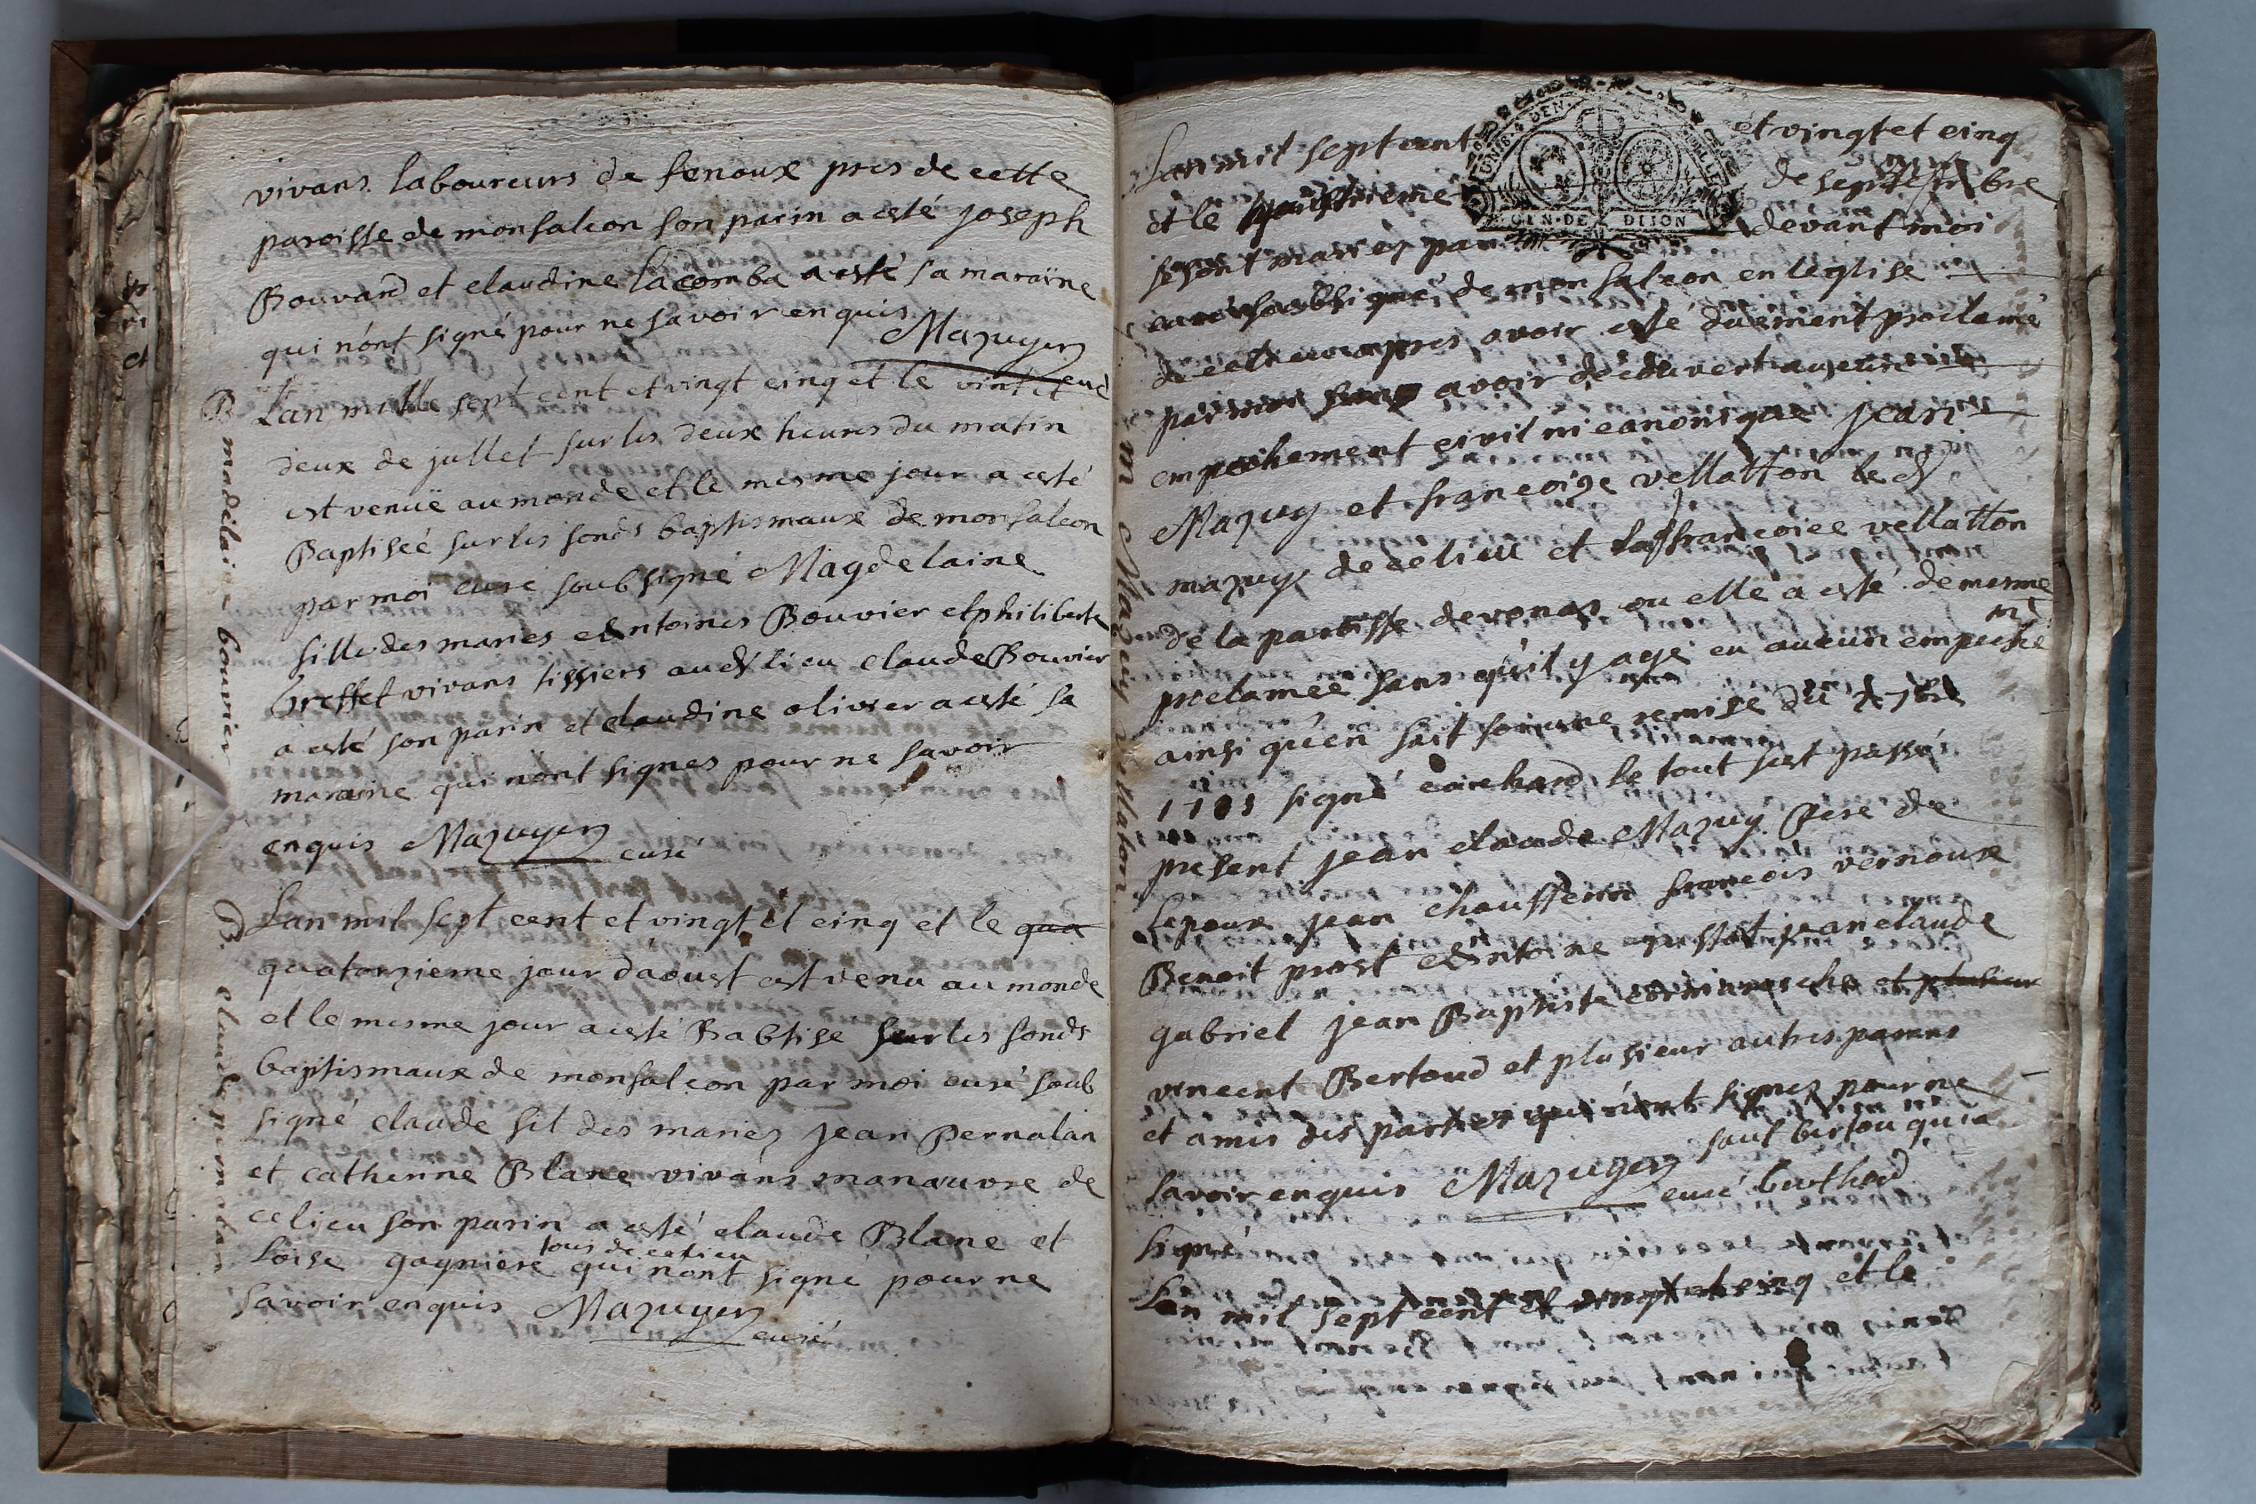 vivans laboureurs de fenoux pres de cette
paroisse de monfalcon son parin a esté joseph
Bouvard et claudine lacomba a esté sa maraine
qui n'ont signé pour ne savoir enquis
Mazuyer
curé
B madelaine bouvier
Lan mille sept cent et vingt cinq et le vint et
deux de jullet sur les deux heures du matin
est venuë au monde et le mesme jour a esté
Baptiseé sur les fonds baptismaux de monfalcon
par moi curé soub signé Magdelaine
fille des maries Antoines Bouvier et philiberte
breffet vivans tissiers aud lieu claude Bouvier
a esté son parin et claudine olivier a esté sa
maraine qui nont signes pour ne savoir
enquis Mazuyer curé
B. claude pernalan
Lan mil sept cent et vingt et cinq et le qua
quatorzieme jour d'aoust est venu au monde
et le mesme jour a esté Babtise sur les fonds
baptismaux de monfalcon par moi curé soub
signé claude fil des mariez jean Pernalan
et catherine Blanc vivans manœuvre de
ce lieu son parin a esté claude Blanc et
tous de ce lieu
Loise gagniere qui nont signé pour ne
savoir enquis Mazuyer curé
GEN·DE DIJON
Lan mil sept cent et vingt et cinq
et le de septembre
se sont mariez par devant moi
curé soubsigné de monfalcon en leglise
apres avoir esté duëment proclamé
avoir découvert aucun
empechement civil ni canonique jean
Mazuy et francoize vellatton le d
mazuy de ce lieu et la francoise vellatton
de la paroisse de vonas ou elle a esté de mesme
mt
proclamée sans qu'il y aye eu aucun empeche
ainsi qu'en fait foi une remise du 7bre
signé le tout sest passé
present jean claude Mazuy Pere de
lepoux jean chauffeur francois vernoux
Benoit prost Antoine jean claude
gabriel jean Baptiste et plusieur
vincent Bertoud et plusieur autres parens
et amis des parties qui n'ont signez pour ne
sauf bertou qui a
savoir enquis Mazuyer curé berthod
signé
m Mazuy vellaton
Lan mil sept cent et vingt et cinq et le